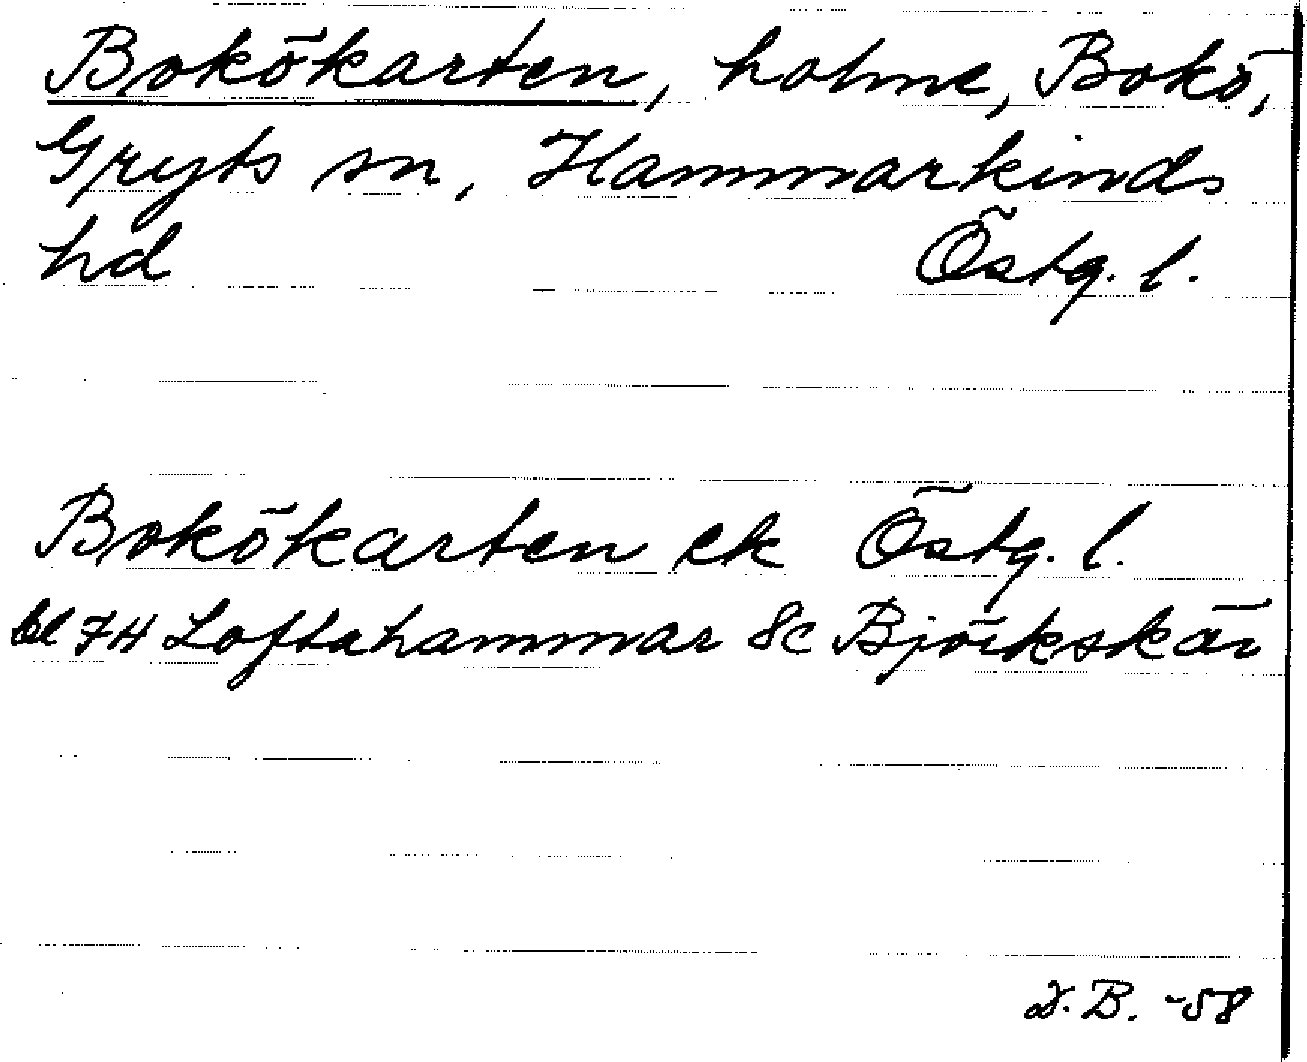 Bokökarten, holme, Bokö,
Gryts sn, Hammarkinds
hd Östg. l.
Bokökarten ek Östg. l.
bl 7H Loftahammar 8c Björkskär
B. -58